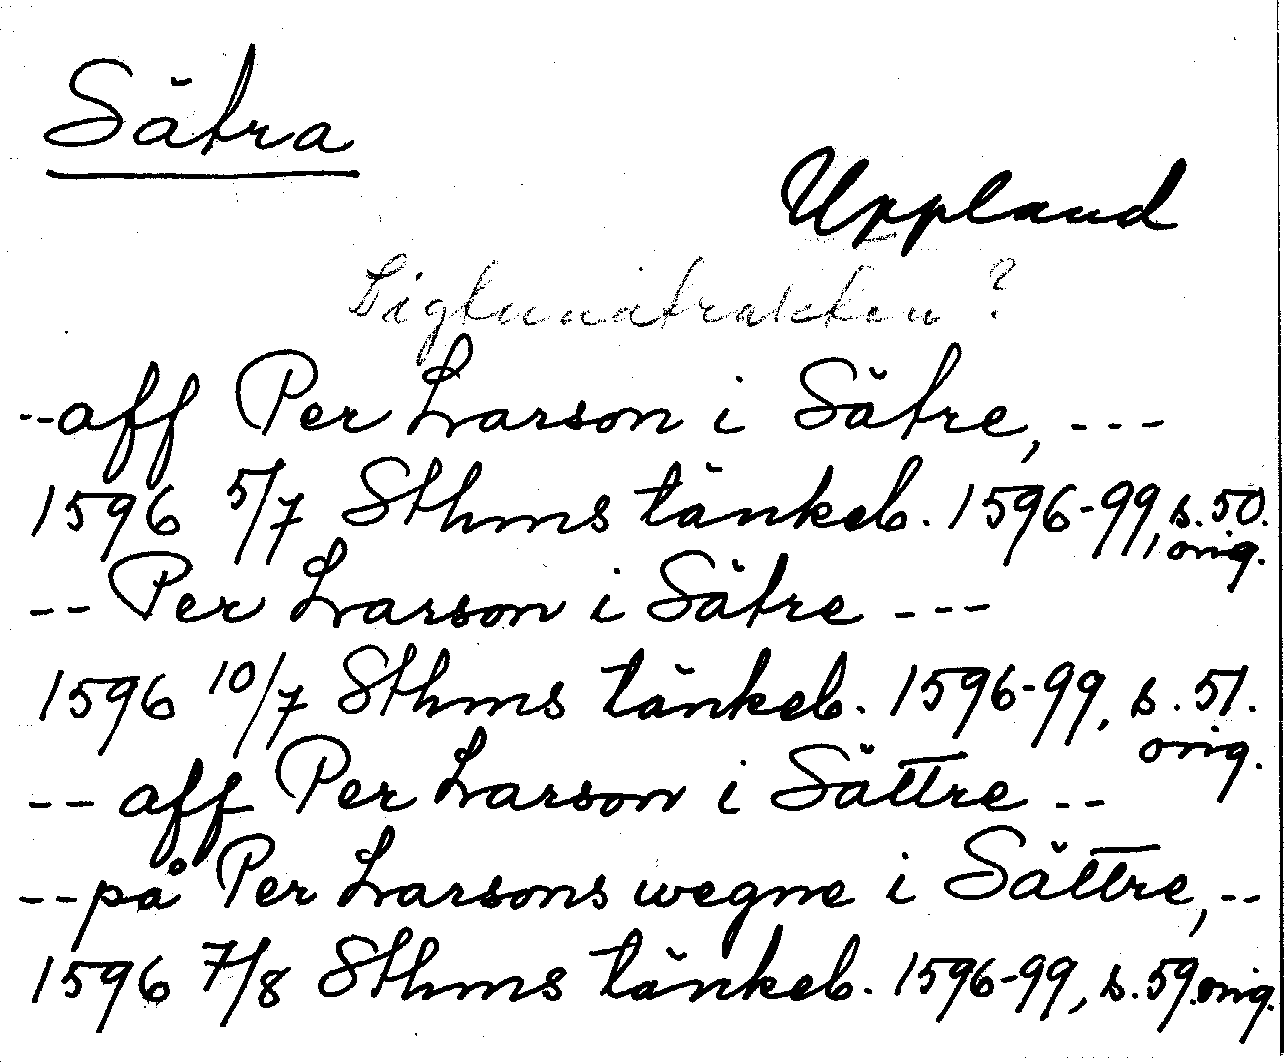 Sätra
Uppland
Sigtunatrakten?
--aff Per Larson i Sätre, ---
1596 5/7 Sthms tänkeb. 1596-99, s. 50.
orig.
-- Per Larson i Sätre ---
1596 10/7 Sthms tänkeb. 1596-99, s. 51.
orig.
-- aff Per Larson i Sättre --
--på Per Larsons wegne i Sättre, --
1596 7/8 Sthms tänkeb. 1596-99, s. 59. orig.